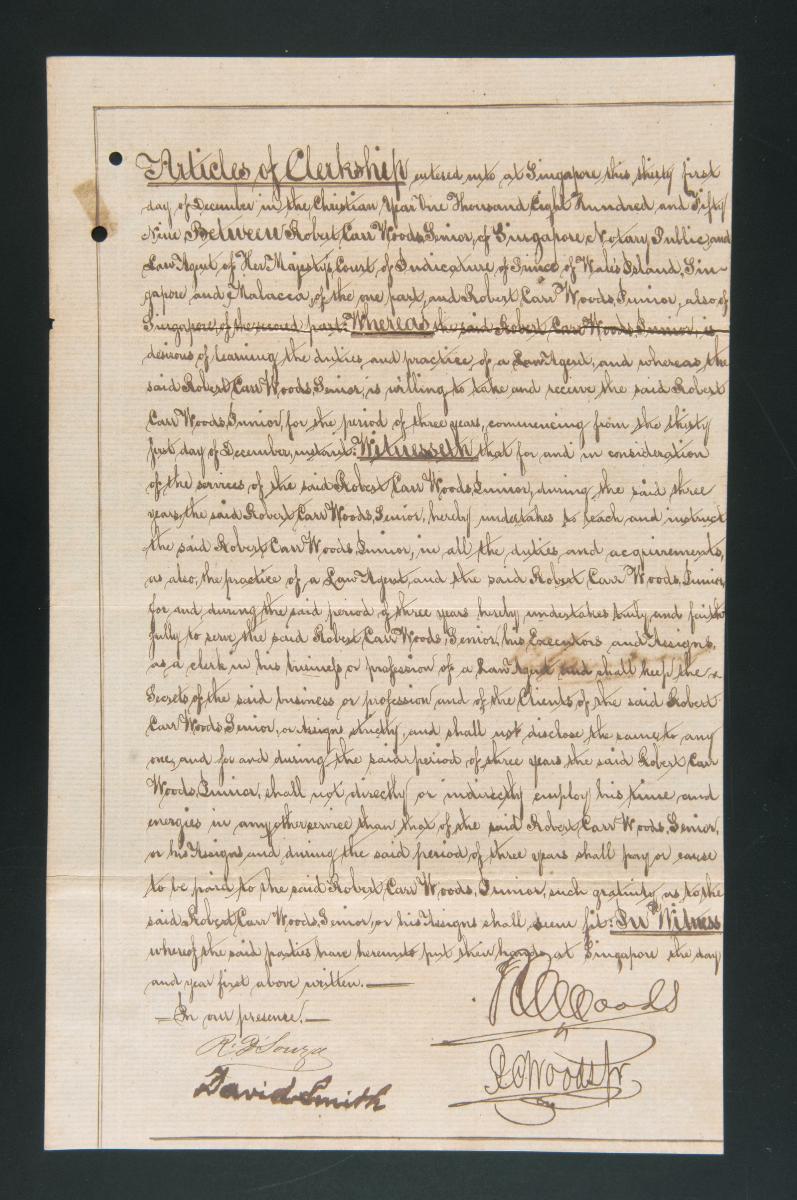 Articles of Clerkship entered into at Singapore this thirty first
day of December in the Christian Year One Thousand Eight Hundred and Fifty
Nine Between Robert Carr Woods, Senior, of Singapore Notary Public, and
Law Agent of Her Majesty's Court of Judicature of Prince of Wales Island, Sin-
gapore and Malacca, of the one part, and Robert Carr Woods, Junior, also of
Singapore, of the second part: Whereas the said Robert Carr Woods, Junior, is
desirous of learning the duties and practice of a Law Agent, and whereas the
said Robert Carr Woods, Senior, is willing to take and receive the said Robert
Carr Woods, Junior, for the period of three years, commencing from the thirty
first day of December, instant: Witnesseth that for and in consideration
of the services of the said Robert Carr Woods, Junior, during the said three
years, the said Robert Carr Woods, Senior, hereby undertakes to teach and instruct
the said Robert Carr Woods, Junior, in all the duties and acquirements,
as also, the practice of a Law Agent, and the said Robert Carr Woods, Junior
for and during the said period of three years hereby undertakes truly and faith
fully to serve the said Robert Carr Woods, Senior, his Executors and Assigns,
as a clerk in his business or profession of a Law Agent and shall keep the
Secrets of the said business or profession and of the Clients of the said Robert
Carr Woods, Senior, or Assigns strictly, and shall not disclose the same to any
one, and for and during the said period of three years the said Robert Carr
Woods, Junior, shall not directly or indirectly employ his time and
energies in any other service than that of the said Robert Carr Woods, Senior,
or his Assigns and during the said period of three years shall pay or cause
to be paid to the said Robert Carr Woods, Junior, such gratuity as to the
said Robert Carr Woods, Senior, or his Assigns shall seem fit: In Witness
whereof the said parties have hereunto put their hands at Singapore the day
and year first above written. —
— In our presence. —
R C Woods
R. D'Souza
R C Woods Jr
David Smith